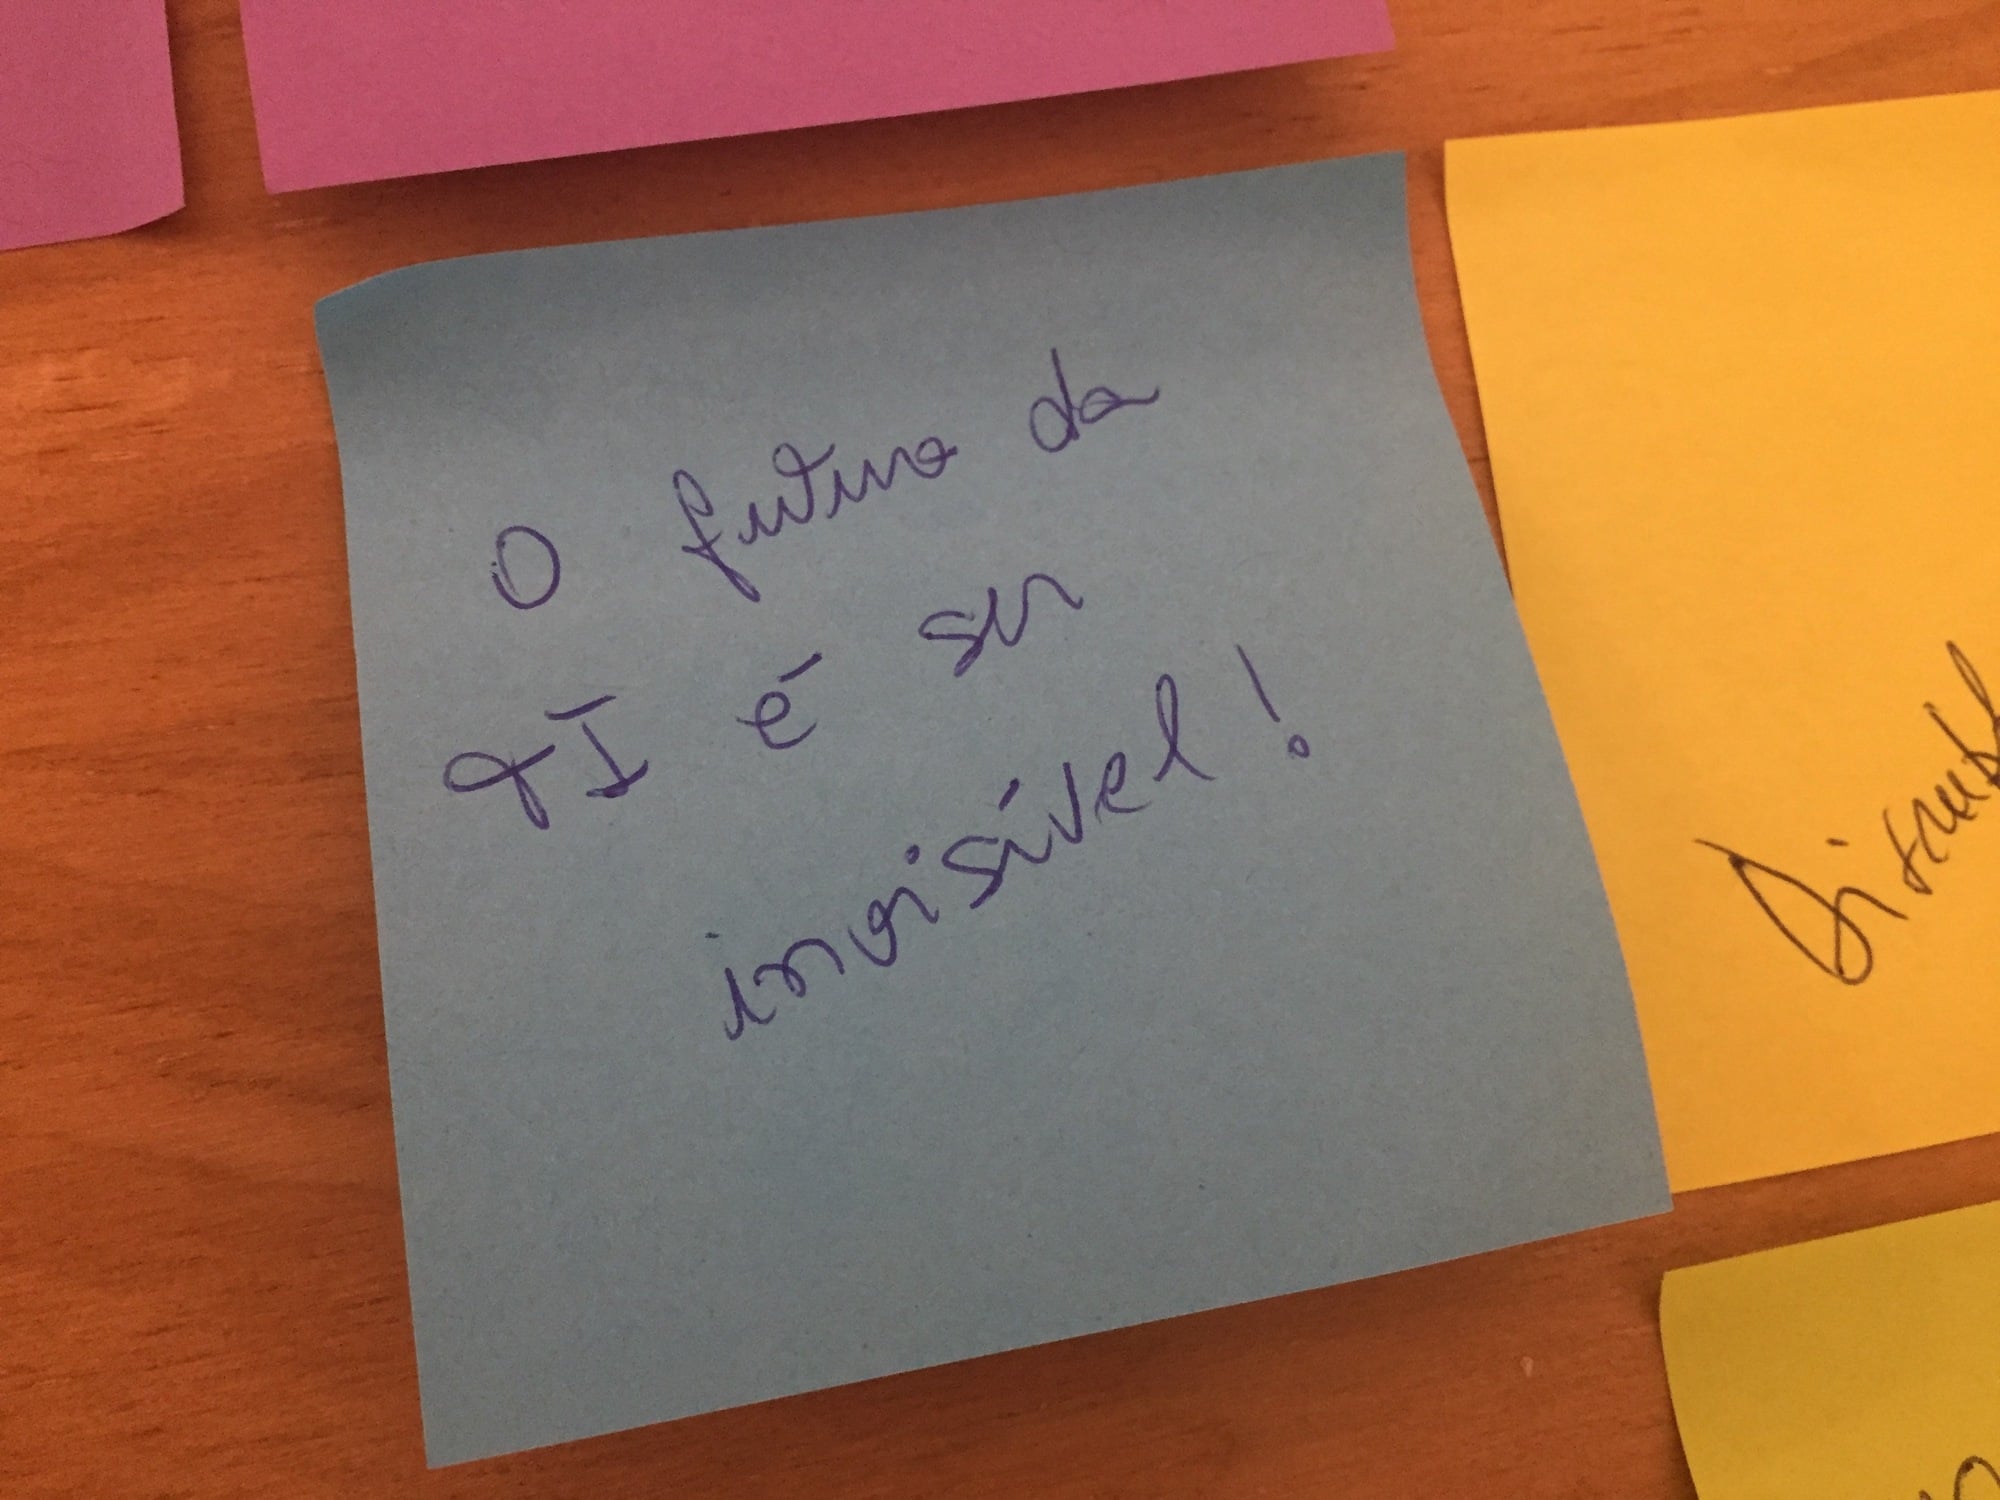 O futuro da
TI é ser
invisível!